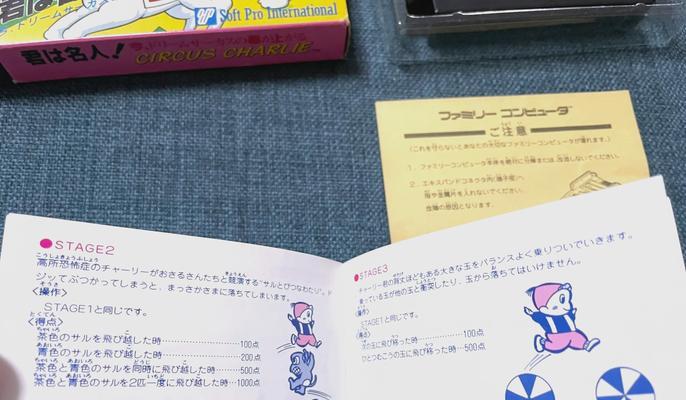 君は名人!
CIRCUS CHARLIE
Soft Pro International
ファミリー コンピュータ
ご注意
(これを守らないとあなたの大切なファミリーコンピュータが壊れます。)
1. ファミリーコンピュータ本体を絶対に分解または、改造しないでください。
2. エキスパンドコネクタ内(端子部)へ
指や金属片を入れないでください。
故障の原因となります。
●STAGE2
高所恐怖症のチャーリーがおさるさんたちと競演する"サルとびつなわたり"。
ぶつかってしまうと、まっさかさまに落ちてしまいます。
〈操作〉
STAGE1と同じです。
〈得点〉
茶色のサルを飛び越した時……100点
青色のサルを飛び越した時……200点
茶色と青色のサルを同時に飛び越した時……500点
茶色と青色のサルを2匹一度に飛び越した時…1000点
●STAGE3
チャーリー君の背丈ほどもある大きな玉をバランスよく乗りついでいきます。
乗っている玉が他の玉と衝突したり、玉から落ちてはいけません。
〈操作〉
STAGE1と同じです。
〈得点〉
次の玉に飛び移った時……100点
ひとつむこうの玉に飛び移った時……500点